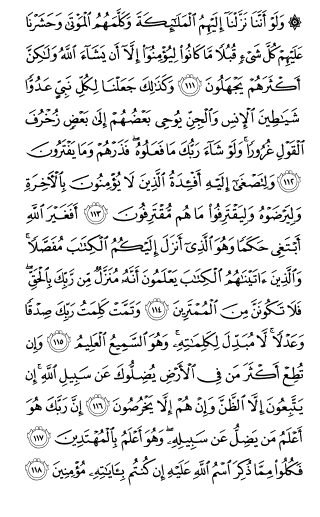 ۞ وَلَوْ أَنَّنَا نَزَّلْنَآ إِلَيْهِمُ ٱلْمَلَـٰٓئِكَةَ وَكَلَّمَهُمُ ٱلْمَوْتَىٰ وَحَشَرْنَا
عَلَيْهِمْ كُلَّ شَىْءٍ قُبُلًا مَّا كَانُوا۟ لِيُؤْمِنُوٓا۟ إِلَّآ أَن يَشَآءَ ٱللَّهُ وَلَـٰكِنَّ
أَكْثَرَهُمْ يَجْهَلُونَ ﴿١١١﴾ وَكَذَٰلِكَ جَعَلْنَا لِكُلِّ نَبِىٍّ عَدُوًّا
شَيَـٰطِينَ ٱلْإِنسِ وَٱلْجِنِّ يُوحِى بَعْضُهُمْ إِلَىٰ بَعْضٍ زُخْرُفَ
ٱلْقَوْلِ غُرُورًا ۚ وَلَوْ شَآءَ رَبُّكَ مَا فَعَلُوهُ ۖ فَذَرْهُمْ وَمَا يَفْتَرُونَ
﴿١١٢﴾ وَلِتَصْغَىٰٓ إِلَيْهِ أَفْـِٔدَةُ ٱلَّذِينَ لَا يُؤْمِنُونَ بِٱلْـَٔاخِرَةِ
وَلِيَرْضَوْهُ وَلِيَقْتَرِفُوا۟ مَا هُم مُّقْتَرِفُونَ ﴿١١٣﴾ أَفَغَيْرَ ٱللَّهِ
أَبْتَغِى حَكَمًا وَهُوَ ٱلَّذِىٓ أَنزَلَ إِلَيْكُمُ ٱلْكِتَـٰبَ مُفَصَّلًا ۚ
وَٱلَّذِينَ ءَاتَيْنَـٰهُمُ ٱلْكِتَـٰبَ يَعْلَمُونَ أَنَّهُۥ مُنَزَّلٌ مِّن رَّبِّكَ بِٱلْحَقِّ ۖ
فَلَا تَكُونَنَّ مِنَ ٱلْمُمْتَرِينَ ﴿١١٤﴾ وَتَمَّتْ كَلِمَتُ رَبِّكَ صِدْقًا
وَعَدْلًا ۚ لَّا مُبَدِّلَ لِكَلِمَـٰتِهِۦ ۚ وَهُوَ ٱلسَّمِيعُ ٱلْعَلِيمُ ﴿١١٥﴾ وَإِن
تُطِعْ أَكْثَرَ مَن فِى ٱلْأَرْضِ يُضِلُّوكَ عَن سَبِيلِ ٱللَّهِ ۚ إِن
يَتَّبِعُونَ إِلَّا ٱلظَّنَّ وَإِنْ هُمْ إِلَّا يَخْرُصُونَ ﴿١١٦﴾ إِنَّ رَبَّكَ هُوَ
أَعْلَمُ مَن يَضِلُّ عَن سَبِيلِهِۦ ۖ وَهُوَ أَعْلَمُ بِٱلْمُهْتَدِينَ
﴿١١٧﴾
فَكُلُوا۟ مِمَّا ذُكِرَ ٱسْمُ ٱللَّهِ عَلَيْهِ إِن كُنتُم بِـَٔايَـٰتِهِۦ مُؤْمِنِينَ ﴿١١٨﴾